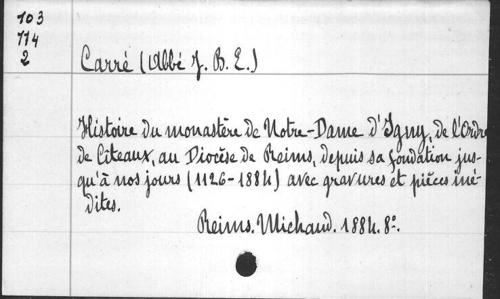 103
714
2
Carré (Abbé J. B. E.)
Histoire du monastère de Notre-Dame d'Igny, de l'Ordre
de Citeaux, au Diocèse de Reims, depuis sa fondation jus-
qu'à nos jours (1126-1884) avec gravures et pièces iné-
dites.
Reims. Michaud. 1884. 8º.